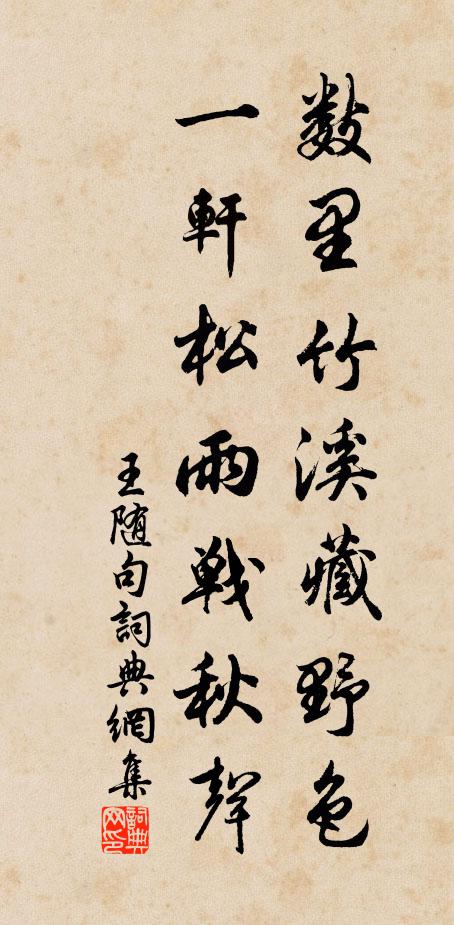 数里竹溪藏野色
一軒松雨戰秋聲
王随句詞典網集
詞典网印